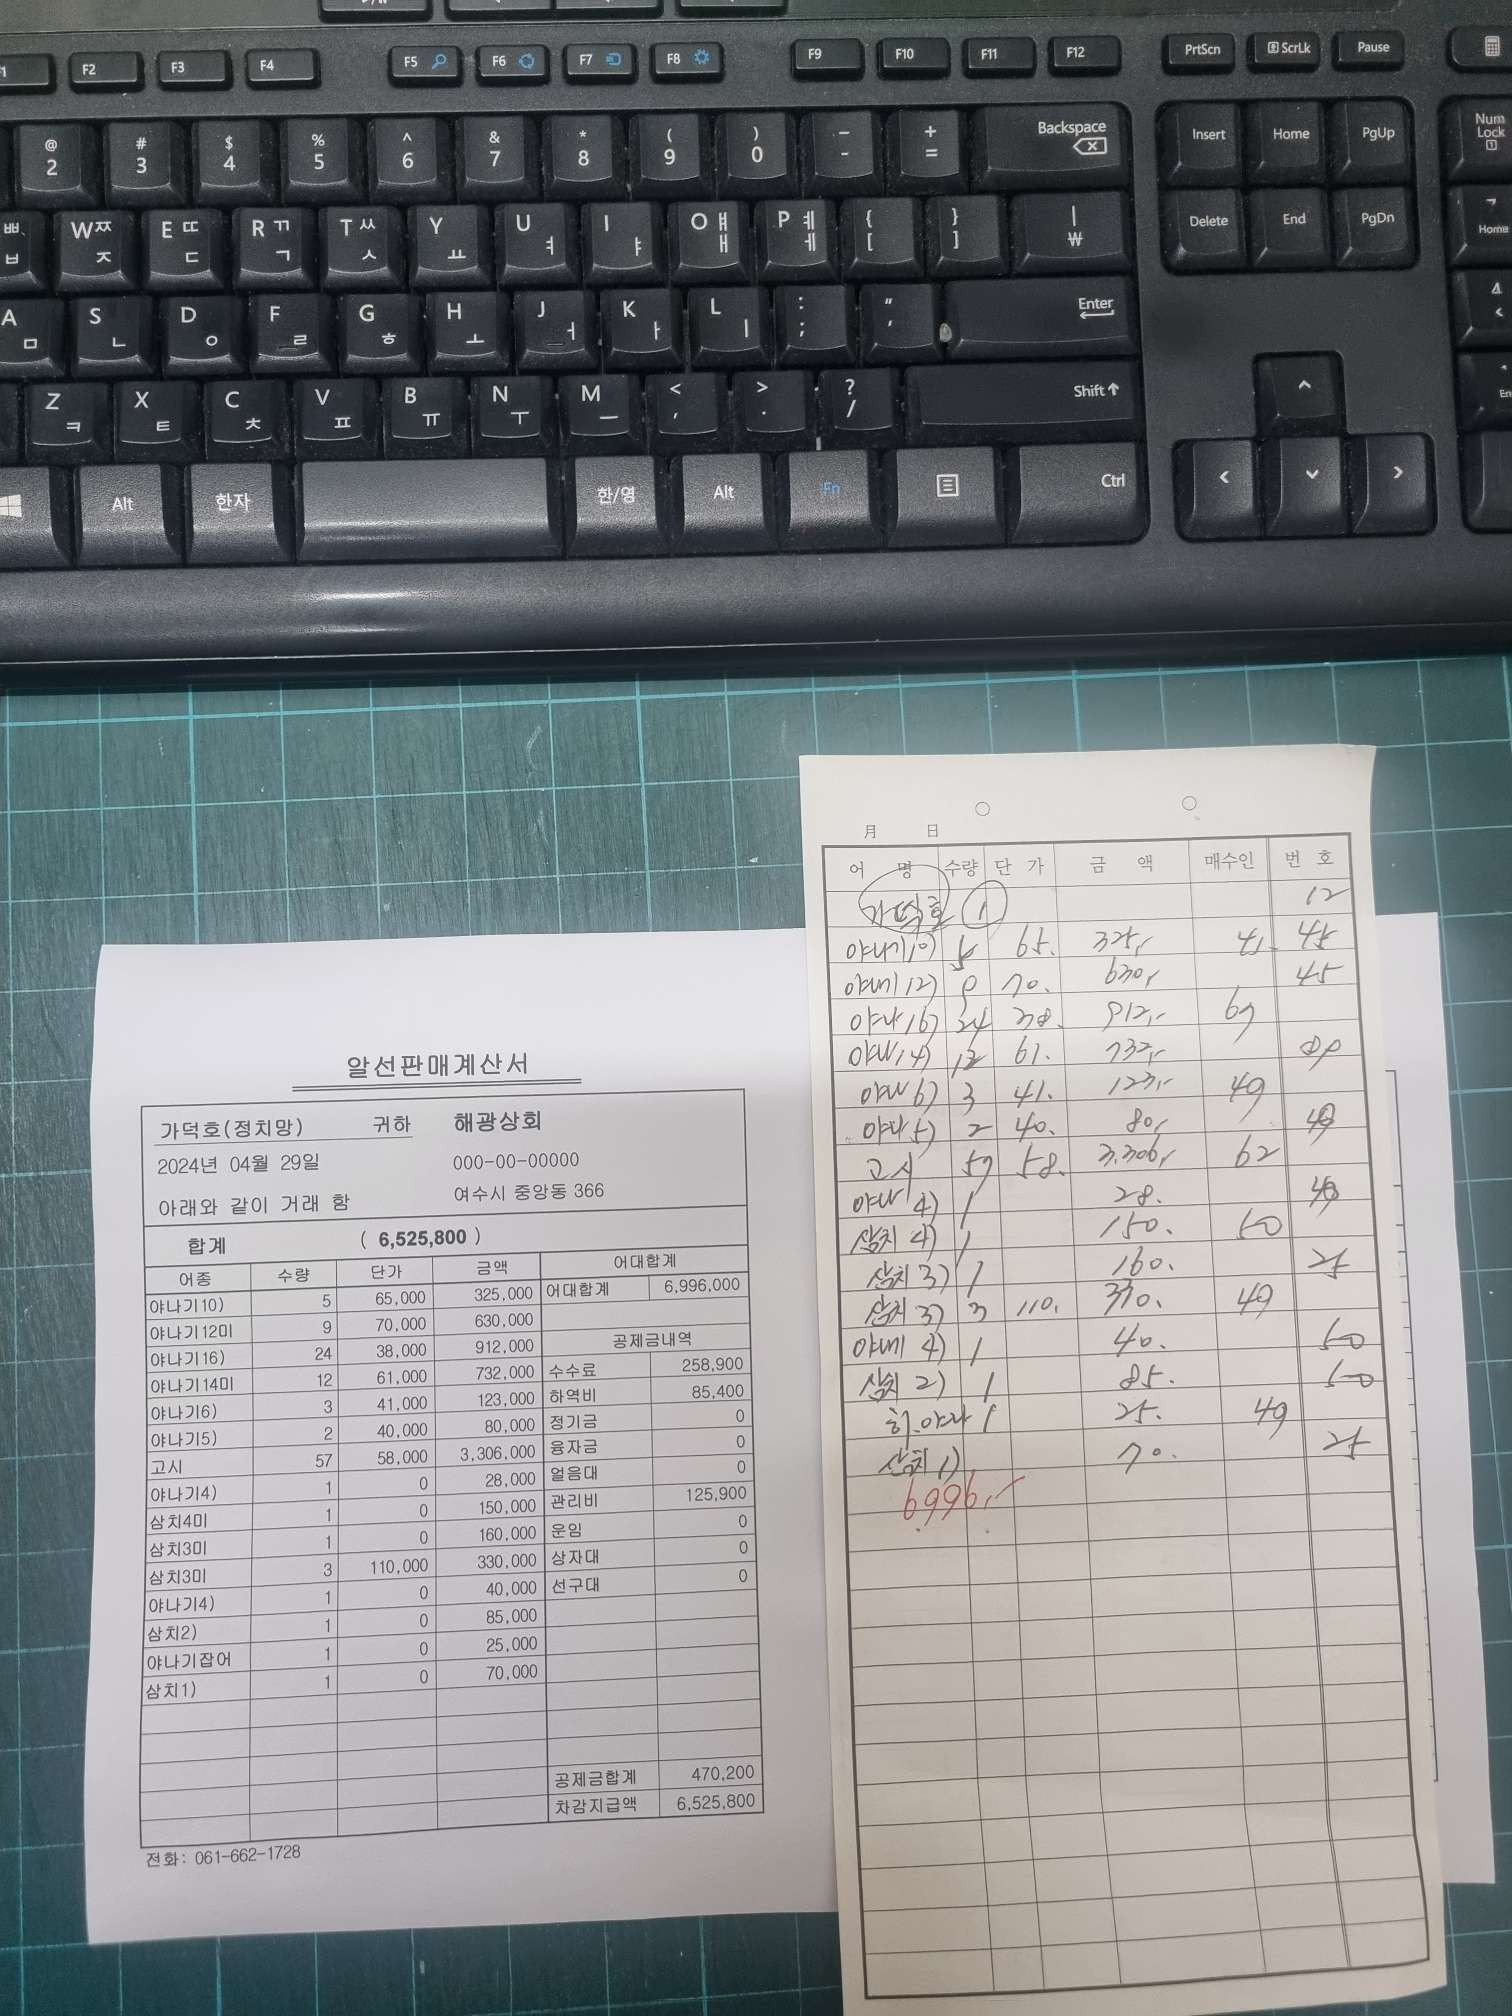 F2 F3 F4 F5 F6 F7 F8 F9 F10 F11 F12 PrtScn ScrLk Pause
@ 2 # 3 $ 4 % 5 ^ 6 & 7 * 8 ( 9 ) 0 - - + = Backspace Insert Home PgUp Num Lock
ㅃ ㅂ W ㅉ ㅈ E ㄸ ㄷ R ㄲ ㄱ T ㅆ ㅅ Y ㅛ U ㅕ I ㅑ O ㅒ ㅐ P ㅖ ㅔ { [ } ] | ₩ Delete End PgDn 7 Home
A ㅁ S ㄴ D ㅇ F ㄹ G ㅎ H ㅗ J ㅓ K ㅏ L ㅣ : ; " ' Enter
Z ㅋ X ㅌ C ㅊ V ㅍ B ㅠ N ㅜ M ㅡ < , > . ? / Shift
Alt 한자 한/영 Alt Fn Ctrl
알선판매계산서
가덕호(정치망) 귀하 해광상회
2024년 04월 29일 000-00-00000
아래와 같이 거래 함 여수시 중앙동 366
합계 ( 6,525,800 )
어종 수량 단가 금액 어대합계
야나기10) 5 65,000 325,000 어대합계 6,996,000
야나기12미 9 70,000 630,000
야나기16) 24 38,000 912,000 공제금내역
야나기14미 12 61,000 732,000 수수료 258,900
야나기6) 3 41,000 123,000 하역비 85,400
야나기5) 2 40,000 80,000 정기금 0
고시 57 58,000 3,306,000 융자금 0
야나기4) 1 0 28,000 얼음대 0
삼치4미 1 0 150,000 관리비 125,900
삼치3미 1 0 160,000 운임 0
삼치3미 3 110,000 330,000 상자대 0
야나기4) 1 0 40,000 선구대 0
삼치2) 1 0 85,000
야나기잡어 1 0 25,000
삼치1) 1 0 70,000
공제금합계 470,200
차감지급액 6,525,800
전화: 061-662-1728
月 日
어 명 수량 단 가 금 액 매수인 번 호
가덕호 1 12
야나기10) 5 65. 325,- 41. 45
12) 9 70. 630,- 45
야나16) 24 38. 912,- 69
14) 12 61. 732,-
6) 3 41. 123,- 49
야나5) 2 40. 80,-
고시 57 58. 3.306,- 62
야나4) 1 28.
삼치 4) 1 150. 50
삼치 3) 1 160. 25
삼치 3) 3 110. 330. 49
4) 1 40. 50
삼치 2) 1 85. 50
1 25. 49
삼치 1) 70. 25
6.996,-